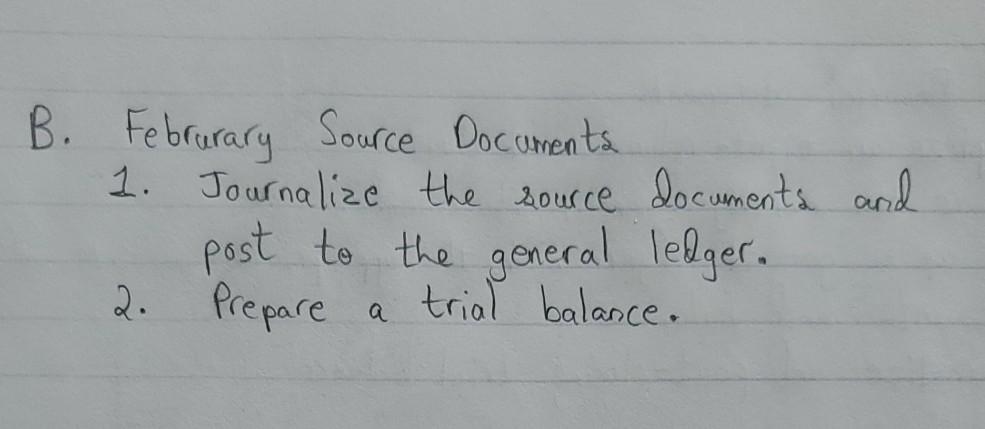 B. Februrary Source Documents
1. Journalize the source documents and
post to the general ledger.
2. Prepare a trial balance.